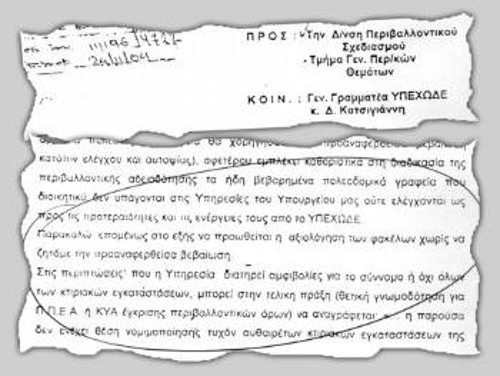 ΠΡΟΣ : -Την Δ/νση Περιβαλλοντικού
Σχεδιασμού
- Τμήμα Γεν. Περ/κών
Θεμάτων
ΚΟΙΝ. : Γεν. Γραμματέα ΥΠΕΧΩΔΕ
κ. Δ. Κατσιγιάννη
κατόπιν ελέγχου και αυτοψίας), αφετέρου εμπλέκει καθοριστικά στη διαδικασία της
περιβαλλοντικής αδειοδότησης τα ήδη βεβαρημένα πολεοδομικά γραφεία που
διοικητικά δεν υπάγονται στις Υπηρεσίες του Υπουργείου μας ούτε ελέγχονται ως
προς τις προτεραιότητες και τις ενέργειες τους από το ΥΠΕΧΩΔΕ.
Παρακαλώ επομένως στο εξής να προωθείται η αξιολόγηση των φακέλων χωρίς να
ζητάμε την προαναφερθείσα βεβαίωση.
Στις περιπτώσεις που η Υπηρεσία διατηρεί αμφιβολίες για το σύννομο ή όχι όλων
των κτιριακών εγκαταστάσεων, μπορεί στην τελική πράξη (θετική γνωμοδότηση για
Π.Π.Ε.Α. ή ΚΥΑ έγκρισης περιβαλλοντικών όρων) να αναγράφεται: η παρούσα
δεν ενέχει θέση νομιμοποίησης τυχόν αυθαιρέτων κτιριακών εγκαταστάσεων της